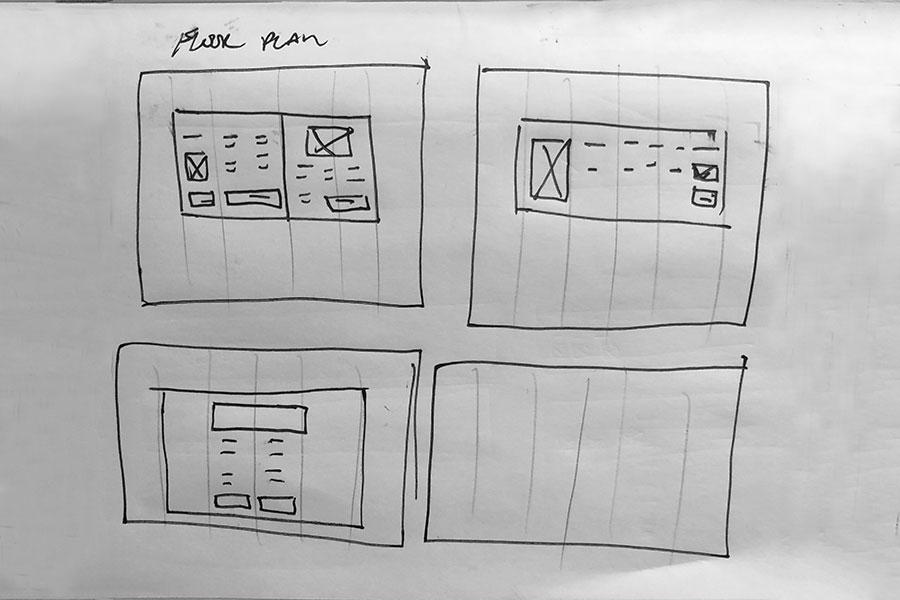 FLOOR PLAN